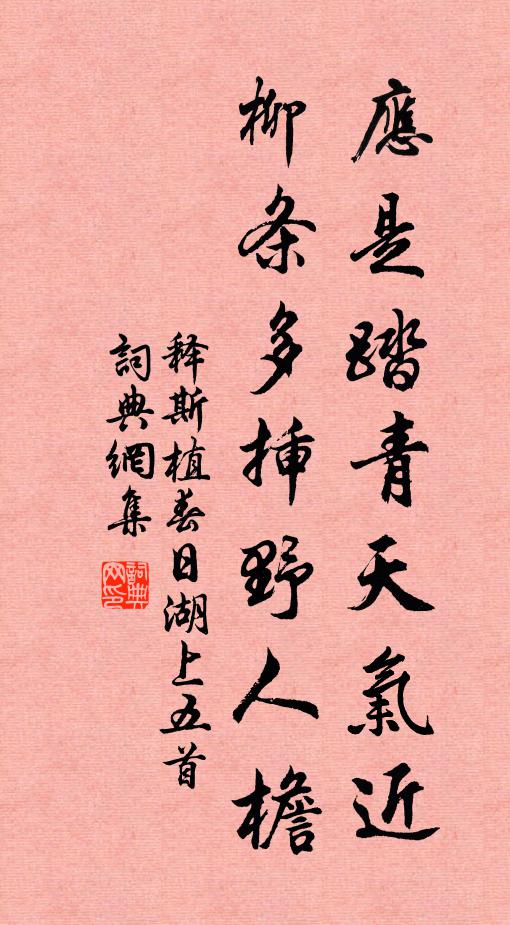 應是踏青天氣近
柳条多挿野人檐
释斯植春日湖上五首
詞典網集
詞典網印